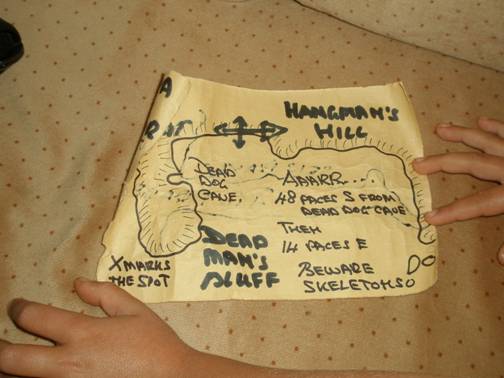 A
RAT
HANGMAN'S
HILL
DEAD
DOG
CAVE.
AAARR....
48 PACES S FROM
DEAD DOG CAVE
THEN
14 PACES E
DEAD
MAN'S
BLUFF
X MARKS
THE SPOT
BEWARE
SKELETONS
DO